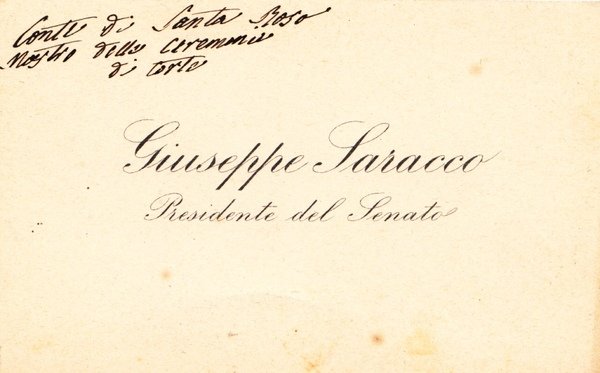 Conte di Santa Rosa
Mastro delle Ceremonie
di Corte
Giuseppe Saracco
Presidente del Senato